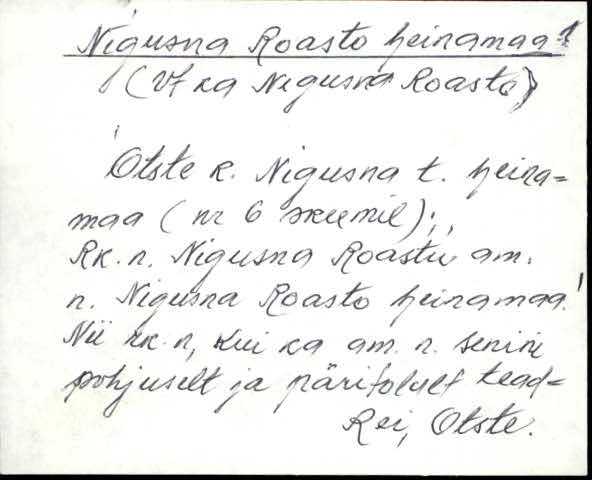 Nigusna Roasto heinamaa!
(Vt ka Nigusna Roasto)
Otste k. Nigusna t. heina=
maa (nr 6 skeemil);
Rk. n. Nigusna Roastu am.
n. Nigusna Roasto heinamaa!
Nii rk. n, kui ka am. n. senini
pohjuselt ja päritolult tead=
Rei, Otste.